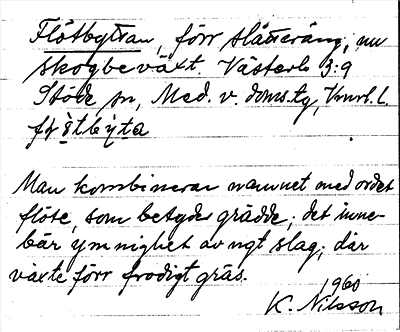 Flötbyttan, förr slåtteräng, nu
skogbeväxt. Västerlo 3:9
Stöde sn, Med. v. doms.tg, Vnrl. l.
flö̀tbỳta
Man kombinerar namnet med ordet
flöte, som betyder grädde; det inne-
bär ymnighet av ngt slag; där
växte förr frodigt gräs.
1960
K. Nilsson